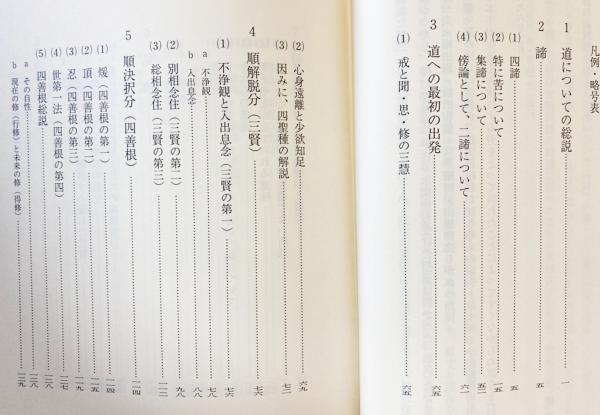 凡例・略号表
1 道についての総説 一
2 諦 五
(1) 四諦 五
(2) 特に苦について 一五
(3) 集諦について 五二
(4) 傍論として、二諦について 六一
3 道への最初の出発 六五
(1) 戒と聞・思・修の三慧 六五
(2) 心身遠離と少欲知足 六九
(3) 因みに、四聖種の解説 七二
4 順解脱分(三賢) 七六
(1) 不浄観と入出息念(三賢の第一) 七六
a 不浄観 七八
b 入出息念 八八
(2) 別相念住(三賢の第二) 九八
(3) 総相念住(三賢の第三) 一一三
5 順決択分(四善根) 一一四
(1) 煖(四善根の第一) 一一四
(2) 頂(四善根の第二) 一二五
(3) 忍(四善根の第三)
(4) 世第一法(四善根の第四) 一二七
(5) 四善根総説 一二八
a その自性 一二八
b 現在の修(行修)と未来の修(得修) 一二九